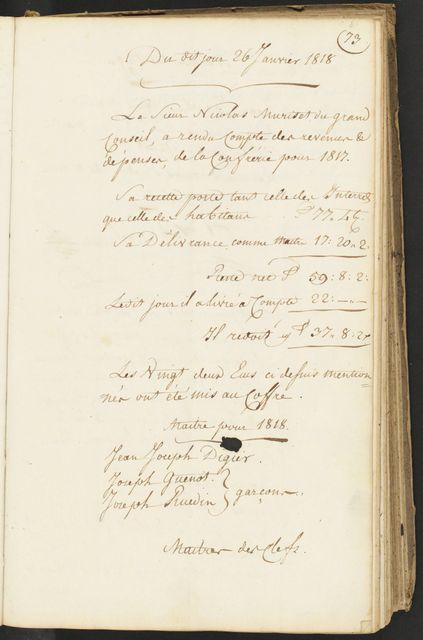 73
Du dit jour 26 Janvier 1818
Le Sieur Nicolas Muriset du grand
Conseil, a rendu Compte des revenus &
depenses, de la Confrérie pour 1817.
Sa recette porte tant celle des Interrets
que celle des habitans 77 4
Sa Délivrance comme Maitre 17: 20 2
Reste net 59: 8: 2:
Ledit jour il a livré à Compte 22: — —
Il redoit 37 8: 2
Les Vingt deux Ecus ci dessus mention=
nés ont été mis au Coffre.
Maitre pour 1818.
Jean Joseph Digier.
Joseph Quenot.
Joseph Ruedin } garçons.
Maitres des Clefs.